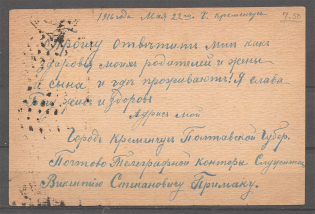 1916 года Мая 22 го г. Кременчуг 7.50
Прошу ответить мне как
здоровье моих родителей и жены
и сына и где проживают. Я слава
Богу жив и здоров
Адрес мой
Городъ Кременчугъ Полтавской Губер.
Почтово Телеграфной Конторы Служителю
Викентию Степановичу Примаку.